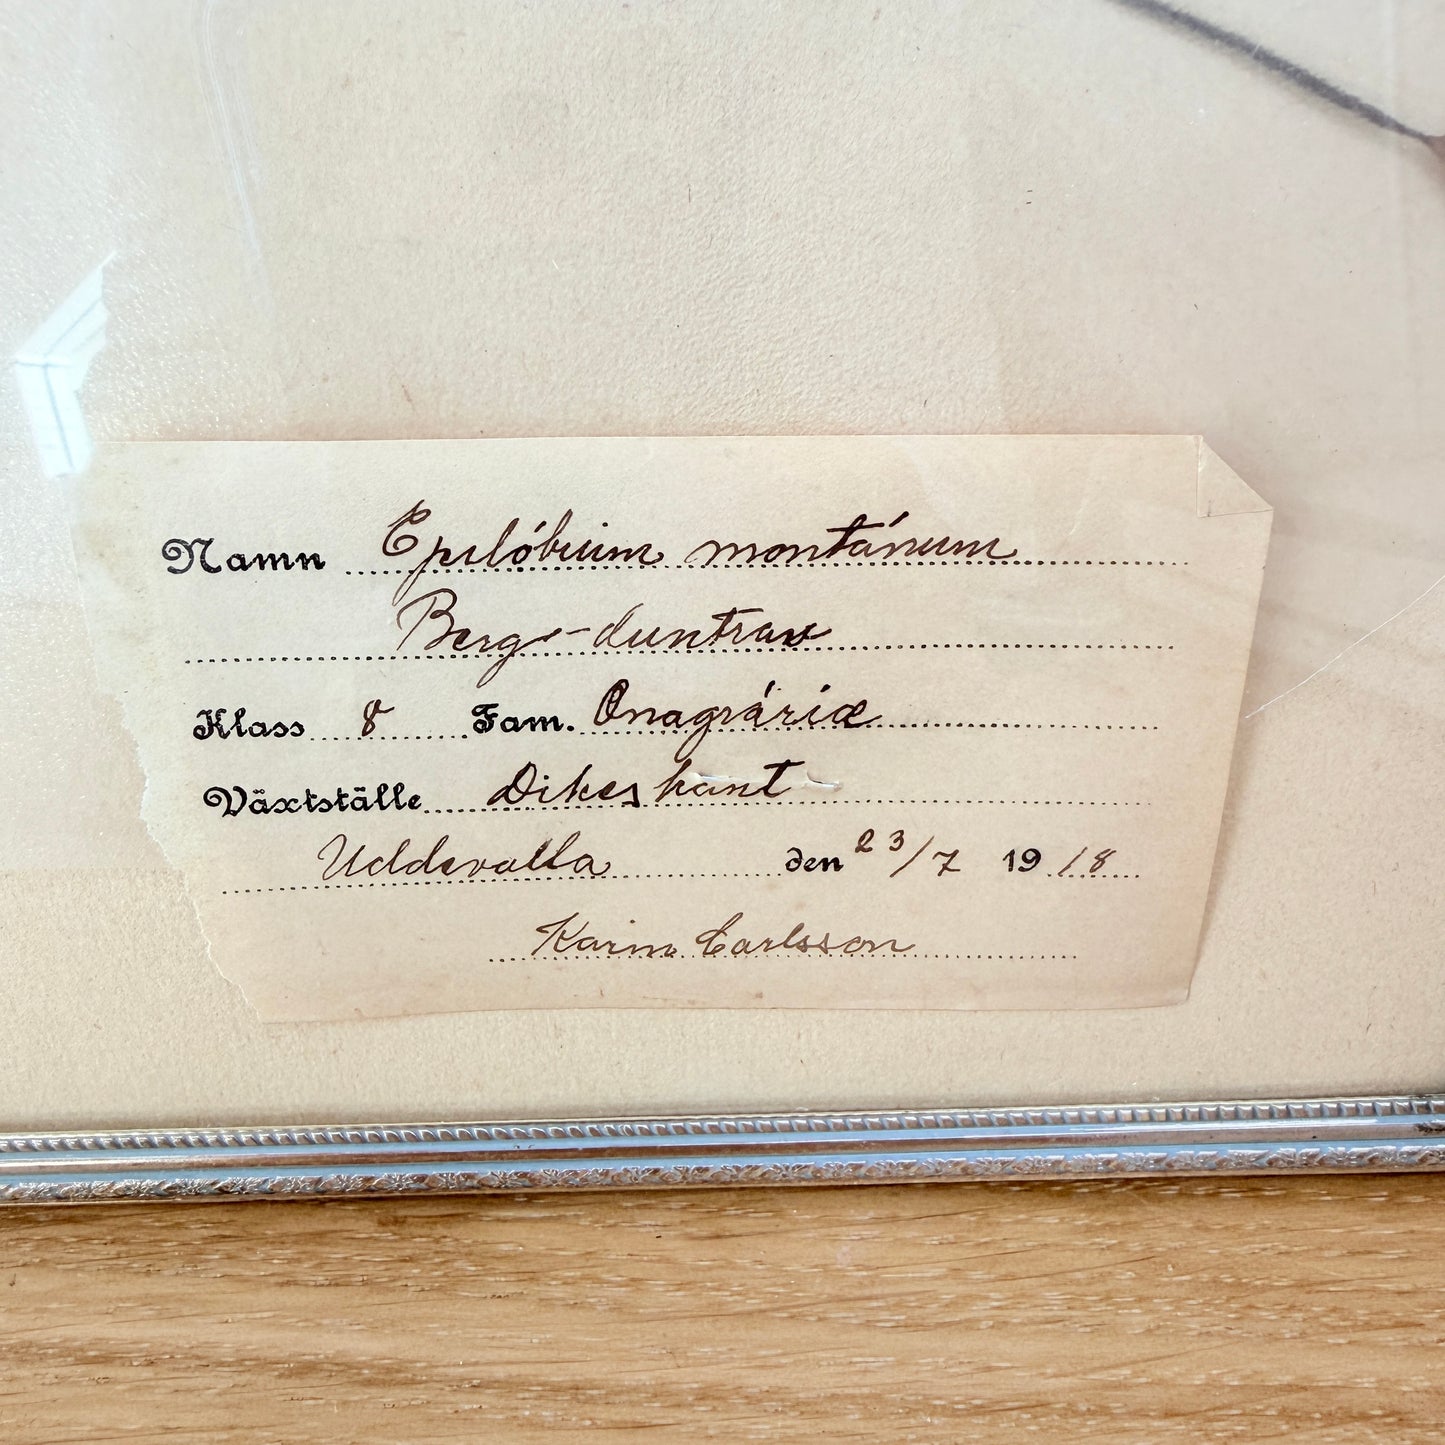 Namn Epilóbium montánum
Berg-duntrav
Klass 8 Fam. Onagráriæ
Växtställe Dikeskant
Uddevalla den 23/7 1918
Karin Carlsson